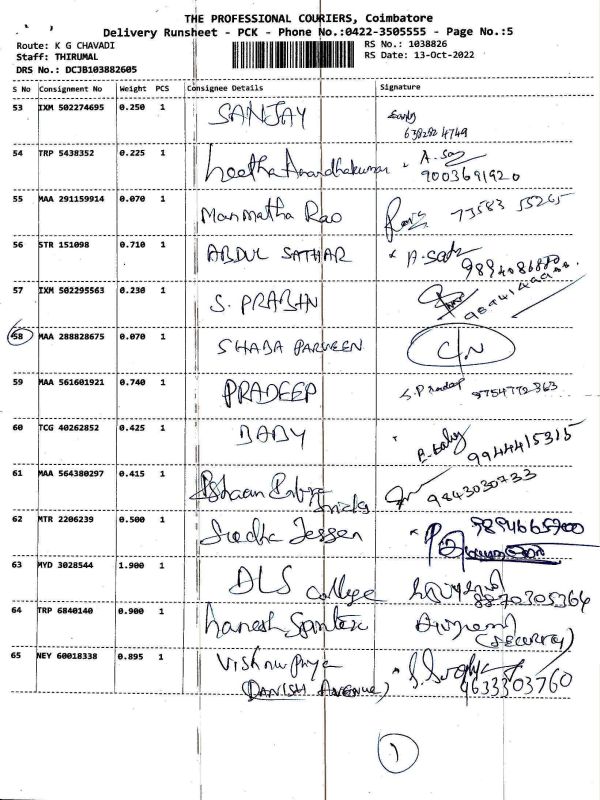 THE PROFESSIONAL COURIERS, Coimbatore
Delivery Runsheet - PCK - Phone No.:0422-3505555 - Page No.:5
Route: K G CHAVADI
RS No.: 1038826
Staff: THIRUMAL
RS Date: 13-Oct-2022
DRS No.: DCJB103882605
S No Consignment No Weight PCS Consignee Details Signature
53 IXM 502274695 0.250 1 SANJAY
54 TRP 5438352 0.225 1 A. 9003691920
55 MAA 291159914 0.070 1 Manmatha Rao 73583 55265
56 STR 151098 0.710 1 ABDUL SATHAR
57 IXM 502295563 0.230 1 S. PRABIN
58 MAA 288828675 0.070 1 SHABA PARVEEN C/N
59 MAA 561601921 0.740 1 PRADEEP S.Pradeep 9754772363
60 TCG 40262852 0.425 1 BABY B. Baby 9944415315
61 MAA 564380297 0.415 1 9843030733
62 MTR 2206239 0.500 1 Sudha Jessen 9894665900
63 MYD 3028544 1.900 1 DLS College 8870305364
64 TRP 6840140 0.900 1 (SECURITY)
65 NEY 60018338 0.895 1 Vishnu Priya 9633303760
(DANISH AVENUE)
1